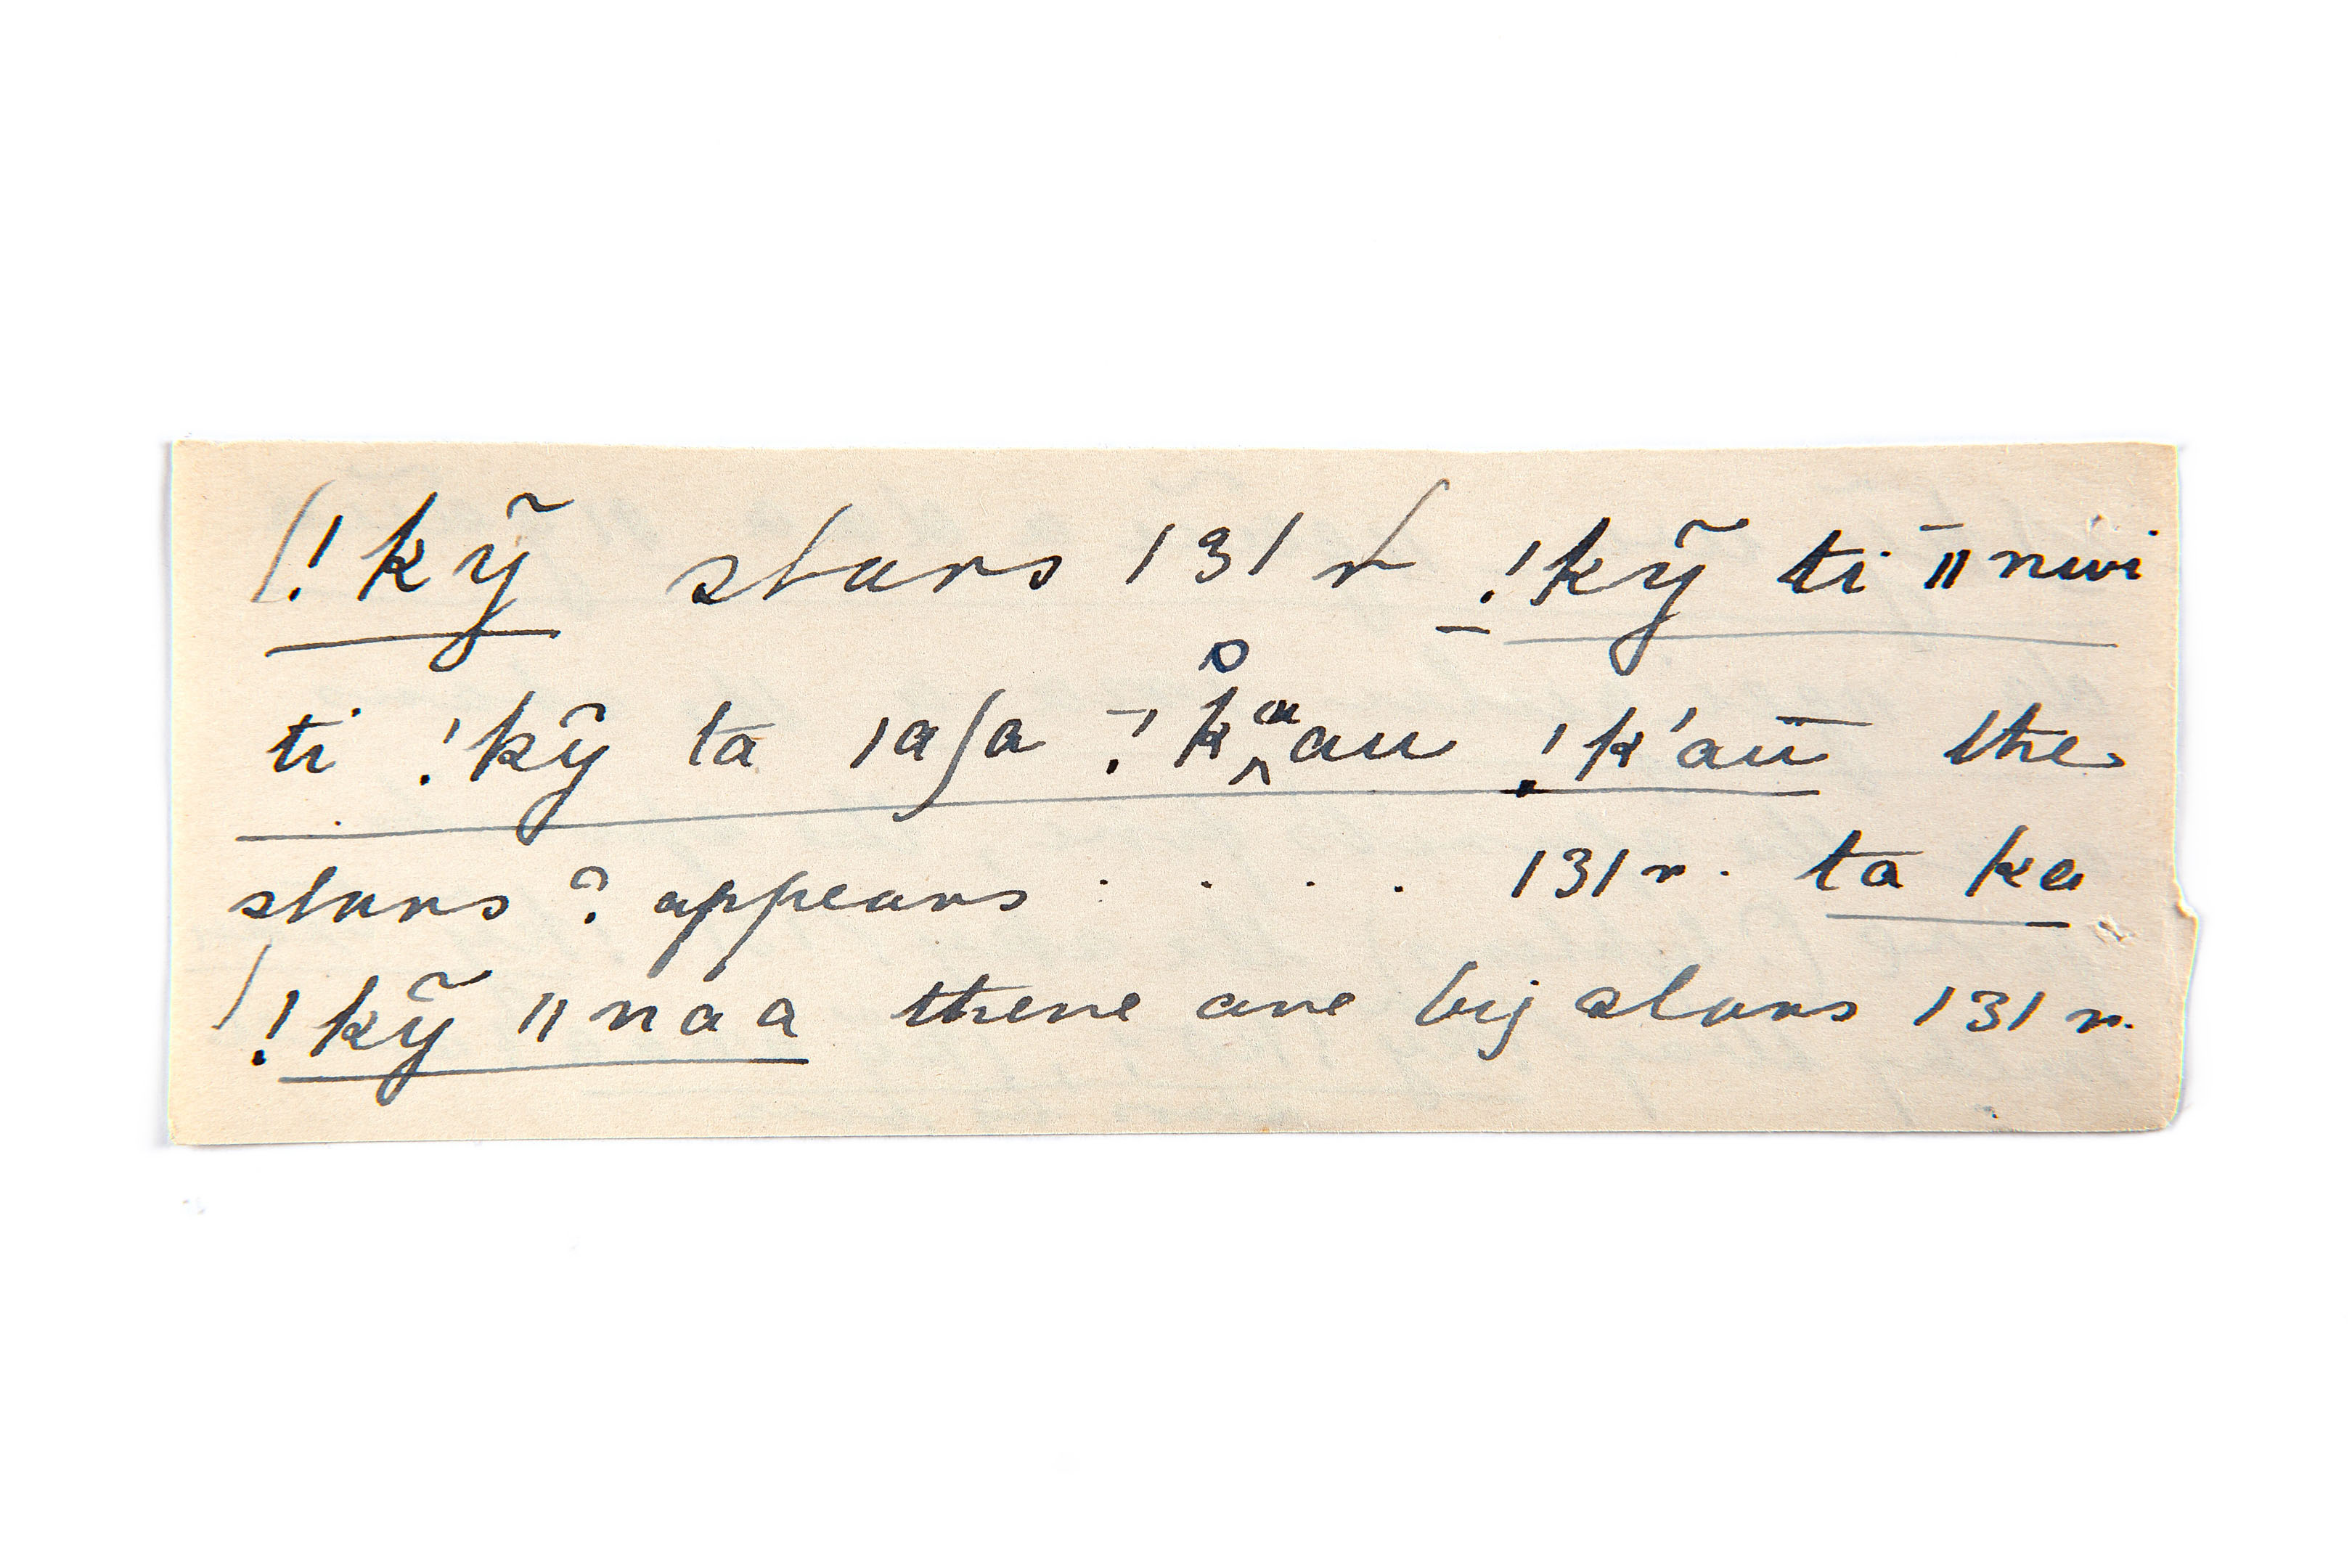 !kỹ stars 131 r !kỹ ti ǁnwi
ti !kỹ ta ǀaʃa !k̊ ͣau !k'aū the
stars ? appears . . . . 131 r. ta ka
!kỹ ǁnaa there are big stars 131 r.